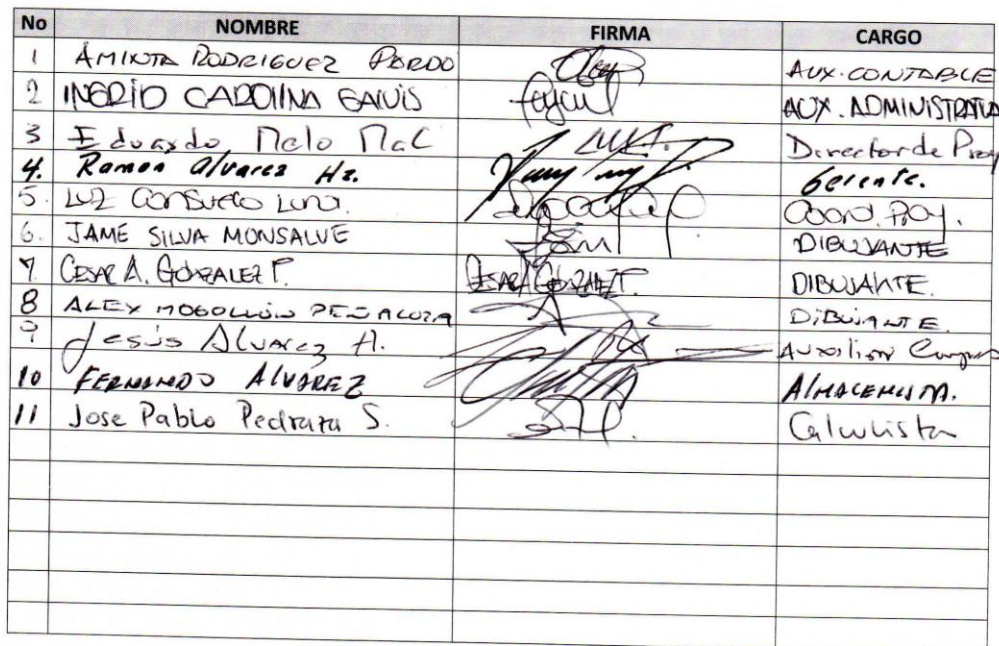 No NOMBRE FIRMA CARGO
1 AMINTA RODRIGUEZ PARDO AUX. CONTABLE
2 INGRID CAROLINA GALVIS AUX. ADMINISTRATIVA
3 Eduardo Melo Mal Director de Proy
4. Ramon Alvarez Hz. Gerente.
5. LUZ CONSUELO LUNA. Coord. Proy.
6. JAME SILVA MONSALVE DIBUJANTE
7 CESAR A. GONZALEZ P. CESAR A. GONZALEZ P. DIBUJANTE.
8 ALEX MOGOLLON PEÑALOZA DIBUJANTE.
9 Jesús Alvarez H. Auxiliar
10 FERNANDO ALVAREZ ALMACENISTA.
11 Jose Pablo Pedraza S. Calculista